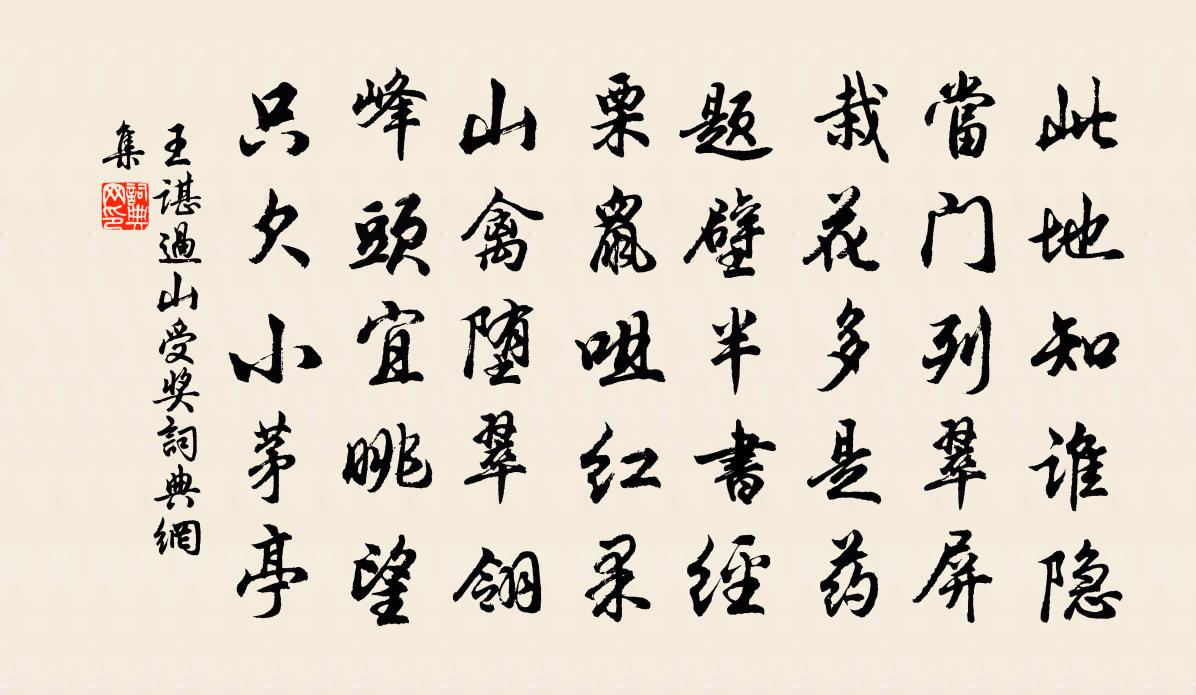 此地知谁隐
當门列翠屏
栽花多是药
题壁半書經
栗鼠咀红果
山禽堕翠翎
峰頭宜眺望
只欠小茅亭
王谌過山受奖詞典網
集
詞典网印